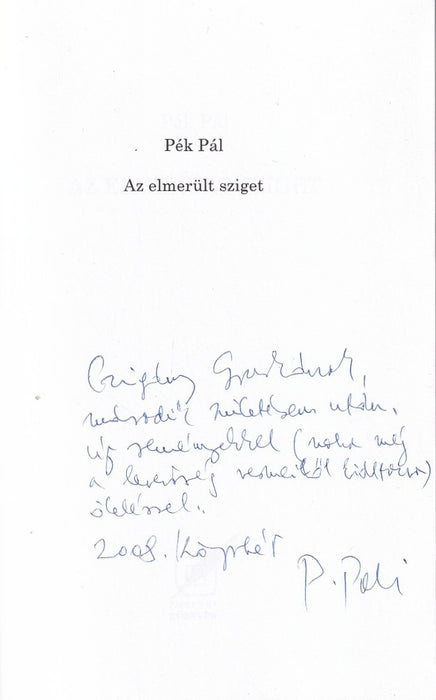 Pék Pál
Az elmerült sziget
Czigány Gyurkának,
második születésem után,
új reményekkel (noha még
a levertség vermeitől
öleléssel.
2008. Könyvhét
P. Pali